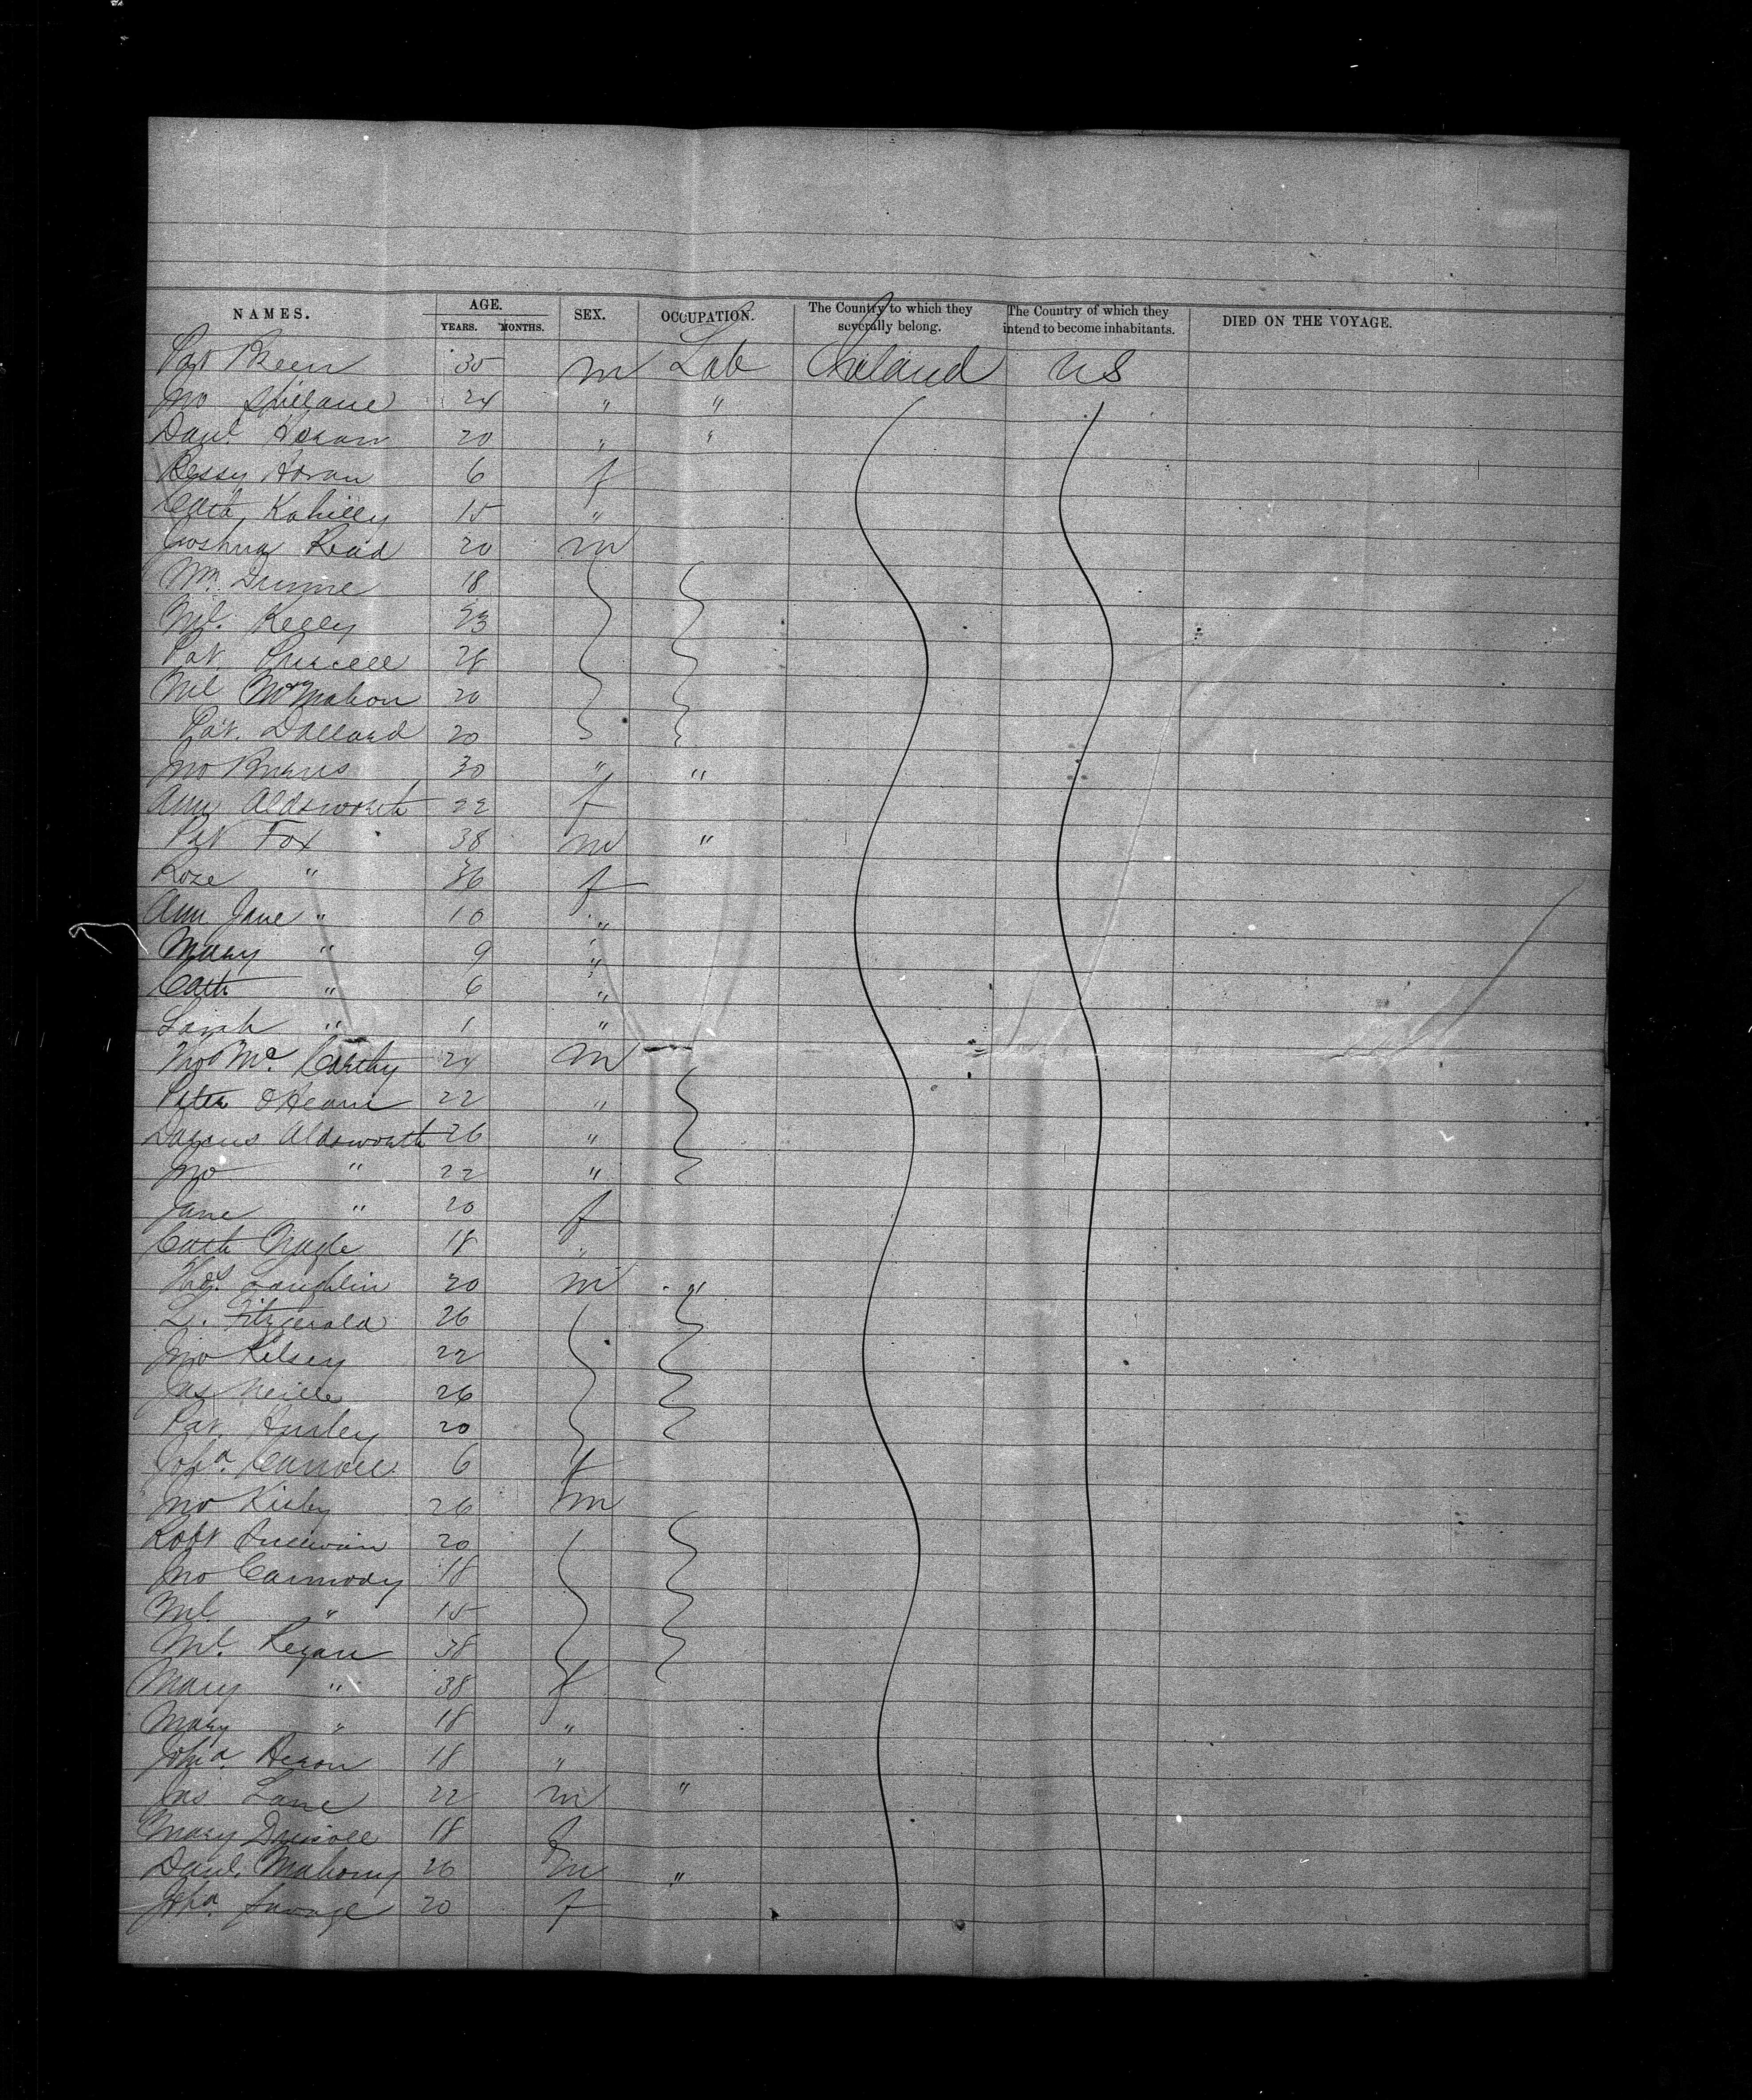 NAMES. AGE. SEX. OCCUPATION. The Country to which they severally belong. The Country of which they intend to become inhabitants. DIED ON THE VOYAGE.
YEARS. MONTHS.
Pat Breen 35 m Lab Ireland US
Jno Spillane 24 " "
Danl. Horan 20 " "
Bessy Horan 6 f
Cath Kahilly 15 "
Joshua Read 20 m
Wm. Dunne 18
Ml. Kelly 23
Pat Purcell 28
Ml McMahon 20
Pat. Dallard 20
Jno Burns 30 " "
Ann Aldsworth 22 f
Pat Fox 38 m "
Rose " 36 f
Ann Jane " 10 "
Mary " 9 "
Cath " 6 "
Sarah " 1 "
Jno Mc. Carthy 24 m
Peter O'Hearn 22 "
Aldsworth 26 "
Jno " 22 "
Jane " 20 f
Cath Nagle 18 "
Thos. Laughlin 20 m "
L. Fitzgerald 26
Jno Kelsey 22
Jas Neille 26
Pat. Hurley 20
Joha. Carroll 6 f
Jno Kirby 26 m
Robt Sullivan 20
Jno Carmody 18
Ml. " 15
Ml. Regan 38
Mary " 38 f
Mary " 18 "
Joha. 18 "
Jas Lane 22 m "
Mary Driscoll 18 f
Danl. Mahony 26 m "
Joha. Savage 20 f